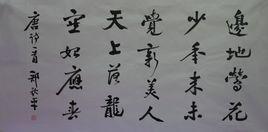 邊地鶯花
少年來未
覺新美人
天上落龍
塞始應春
唐詩一首